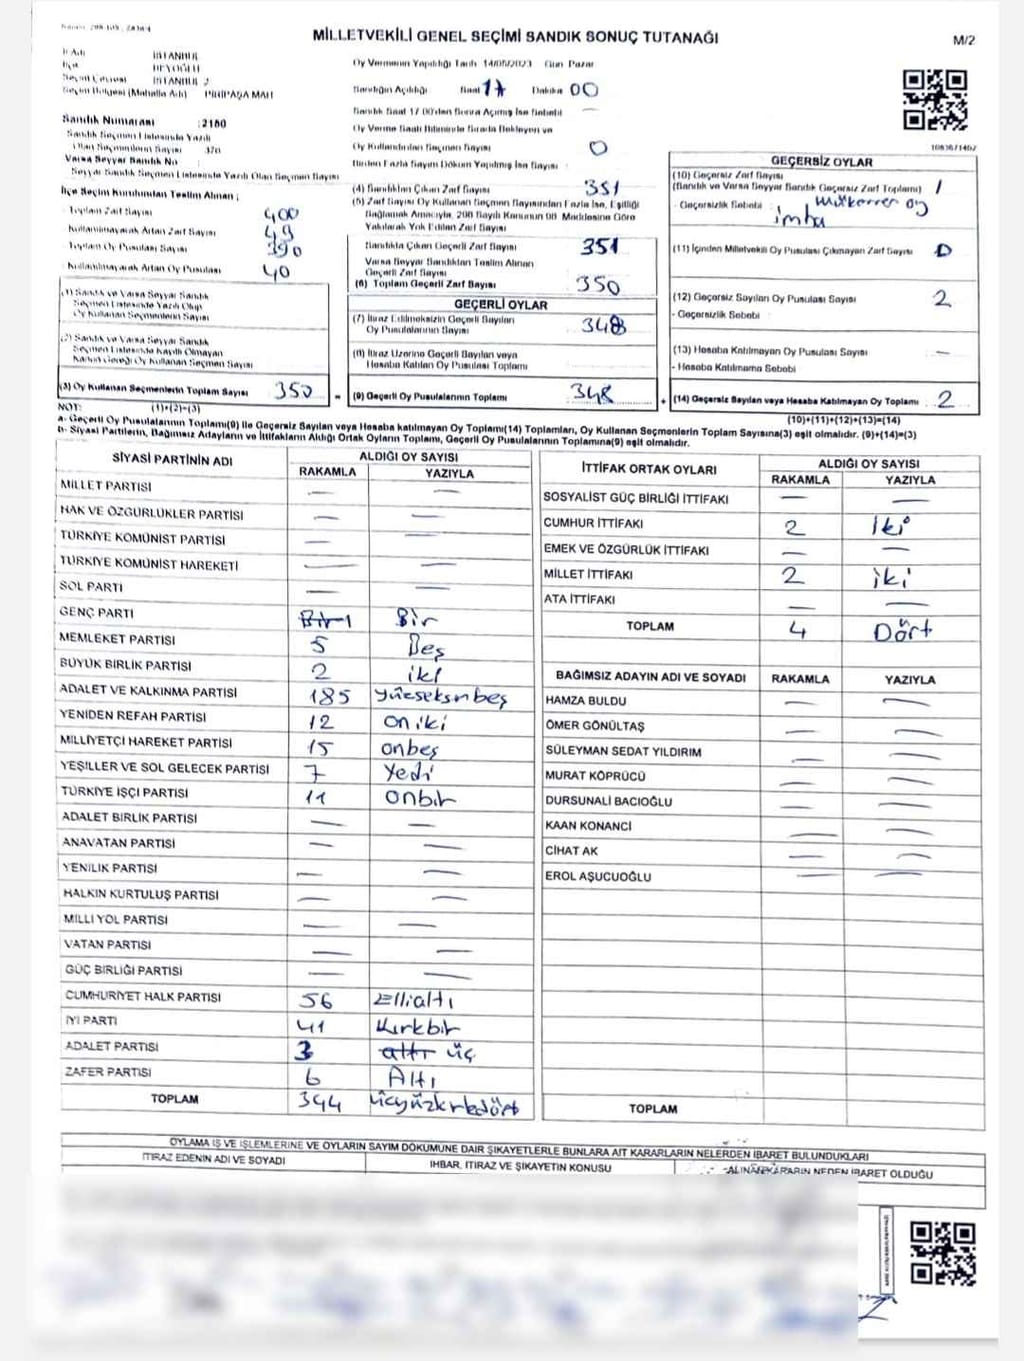 MİLLETVEKİLİ GENEL SEÇİMİ SANDIK SONUÇ TUTANAĞI
M/2
İl Adı : İSTANBUL
İlçe : BEYOĞLU
Seçim Çevresi : İSTANBUL 2
Seçim Bölgesi (Mahalla Adı) : PİRİPAŞA MAH
Oy Vermenin Yapıldığı Tarih 14/05/2023 Gün Pazar
Sandığın Açıldığı Saat 17 Dakika 00
Sandık Saat 17 00'den Sonra Açılmış İse Sebebi —
Oy Verme Saati Bitiminde Sırada Bekleyen ve
Oy Kullandırılan Seçmen Sayısı 0
Birden Fazla Sayım Döküm Yapılmış İse Sayısı :
Sandık Numarası : 2180
Sandık Seçmen Listesinde Yazılı
Olan Seçmenlerin Sayısı : 370
Varsa Seyyar Sandık No :
Seyyar Sandık Seçmen Listesinde Yazılı Olan Seçmen Sayısı
İlçe Seçim Kurulundan Teslim Alınan ;
- Toplam Zarf Sayısı 400
- Kullanılmayarak Artan Zarf Sayısı 49
- Toplam Oy Pusulası Sayısı 390
- Kullanılmayarak Artan Oy Pusulası 40
(1) Sandık ve Varsa Seyyar Sandık
Seçmen Listesinde Yazılı Olup
Oy Kullanan Seçmenlerin Sayısı
(2) Sandık ve Varsa Seyyar Sandık
Seçmen Listesinde Kayıtlı Olmayan
Kanun Gereği Oy Kullanan Seçmen Sayısı
(3) Oy Kullanan Seçmenlerin Toplam Sayısı 350
(1)+(2)=(3)
(4) Sandıktan Çıkan Zarf Sayısı 351
(5) Zarf Sayısı Oy Kullanan Seçmen Sayısından Fazla İse, Eşitliği
Sağlamak Amacıyla, 298 Sayılı Kanunun 98 Maddesine Göre
Yakılarak Yok Edilen Zarf Sayısı
Sandıkta Çıkan Geçerli Zarf Sayısı 351
Varsa Seyyar Sandıktan Teslim Alınan
Geçerli Zarf Sayısı
(6) Toplam Geçerli Zarf Sayısı 350
GEÇERLİ OYLAR
(7) İtiraz Edilmeksizin Geçerli Sayılan
Oy Pusulalarının Sayısı 348
(8) İtiraz Üzerine Geçerli Sayılan veya
Hesaba Katılan Oy Pusulası Toplamı
(9) Geçerli Oy Pusulalarının Toplamı 348
GEÇERSİZ OYLAR
(10) Geçersiz Zarf Sayısı
(Sandık ve Varsa Seyyar Sandık Geçersiz Zarf Toplamı) 1
- Geçersizlik Sebebi : Mükerrer oy
imha
(11) İçinden Milletvekili Oy Pusulası Çıkmayan Zarf Sayısı 0
(12) Geçersiz Sayılan Oy Pusulası Sayısı 2
- Geçersizlik Sebebi
(13) Hesaba Katılmayan Oy Pusulası Sayısı —
- Hesaba Katılmama Sebebi
(14) Geçersiz Sayılan veya Hesaba Katılmayan Oy Toplamı 2
(10)+(11)+(12)+(13)=(14)
NOT:
a- Geçerli Oy Pusulalarının Toplamı(9) ile Geçersiz Sayılan veya Hesaba katılmayan Oy Toplamı(14) Toplamları, Oy Kullanan Seçmenlerin Toplam Sayısına(3) eşit olmalıdır. (9)+(14)=(3)
b- Siyasi Partilerin, Bağımsız Adayların ve İttifakların Aldığı Ortak Oyların Toplamı, Geçerli Oy Pusulalarının Toplamına(9) eşit olmalıdır.
SİYASİ PARTİNİN ADI ALDIĞI OY SAYISI
RAKAMLA YAZIYLA
MİLLET PARTİSİ — —
HAK VE ÖZGÜRLÜKLER PARTİSİ — —
TÜRKİYE KOMÜNİST PARTİSİ — —
TÜRKİYE KOMÜNİST HAREKETİ — —
SOL PARTİ — —
GENÇ PARTİ Bir 1 Bir
MEMLEKET PARTİSİ 5 Beş
BÜYÜK BİRLİK PARTİSİ 2 iki
ADALET VE KALKINMA PARTİSİ 185 yüzseksenbeş
YENİDEN REFAH PARTİSİ 12 oniki
MİLLİYETÇİ HAREKET PARTİSİ 15 onbeş
YEŞİLLER VE SOL GELECEK PARTİSİ 7 Yedi
TÜRKİYE İŞÇİ PARTİSİ 11 onbir
ADALET BİRLİK PARTİSİ — —
ANAVATAN PARTİSİ — —
YENİLİK PARTİSİ — —
HALKIN KURTULUŞ PARTİSİ — —
MİLLİ YOL PARTİSİ — —
VATAN PARTİSİ — —
GÜÇ BİRLİĞİ PARTİSİ — —
CUMHURİYET HALK PARTİSİ 56 Ellialtı
İYİ PARTİ 41 Kırkbir
ADALET PARTİSİ 3 altı üç
ZAFER PARTİSİ 6 Altı
TOPLAM 344 üçyüzkırkdört
İTTİFAK ORTAK OYLARI ALDIĞI OY SAYISI
RAKAMLA YAZIYLA
SOSYALİST GÜÇ BİRLİĞİ İTTİFAKI — —
CUMHUR İTTİFAKI 2 iki
EMEK VE ÖZGÜRLÜK İTTİFAKI — —
MİLLET İTTİFAKI 2 iki
ATA İTTİFAKI — —
TOPLAM 4 Dört
BAĞIMSIZ ADAYIN ADI VE SOYADI RAKAMLA YAZIYLA
HAMZA BULDU — —
ÖMER GÖNÜLTAŞ — —
SÜLEYMAN SEDAT YILDIRIM — —
MURAT KÖPRÜCÜ — —
DURSUNALİ BACIOĞLU — —
KAAN KONANCİ — —
CİHAT AK — —
EROL AŞUCUOĞLU — —
TOPLAM
OYLAMA İŞ VE İŞLEMLERİNE VE OYLARIN SAYIM DÖKÜMÜNE DAİR ŞİKAYETLERLE BUNLARA AİT KARARLARIN NELERDEN İBARET BULUNDUKLARI
İTİRAZ EDENİN ADI VE SOYADI İHBAR, İTİRAZ VE ŞİKAYETİN KONUSU ALINAN KARARIN NEDEN İBARET OLDUĞU